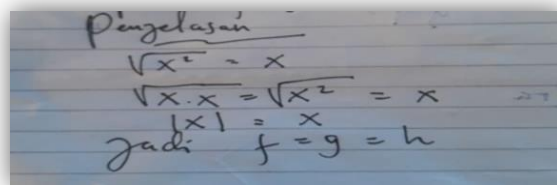 Penjelasan
√x² = x
√x.x = √x² = x
|x| = x
Jadi f = g = h